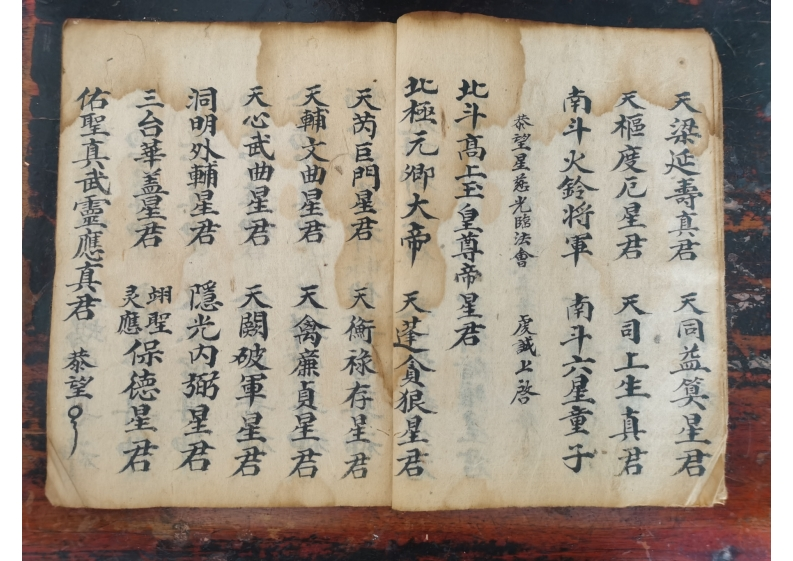 天梁延壽真君 天同益筭星君
天樞度厄星君 天司上生真君
南斗火鈴将軍 南斗六星童子
恭望星慈光臨法會 虔誠上啓
北斗髙上玉皇尊帝星君
北極元卿大帝 天蓬貪狼星君
天芮巨門星君 天衝祿存星君
天輔文曲星君 天禽廉貞星君
天心武曲星君 天闕破軍星君
洞明外輔星君 隱光内弼星君
三台華盖星君 翊聖灵應保德星君
佑聖真武靈應真君 恭望